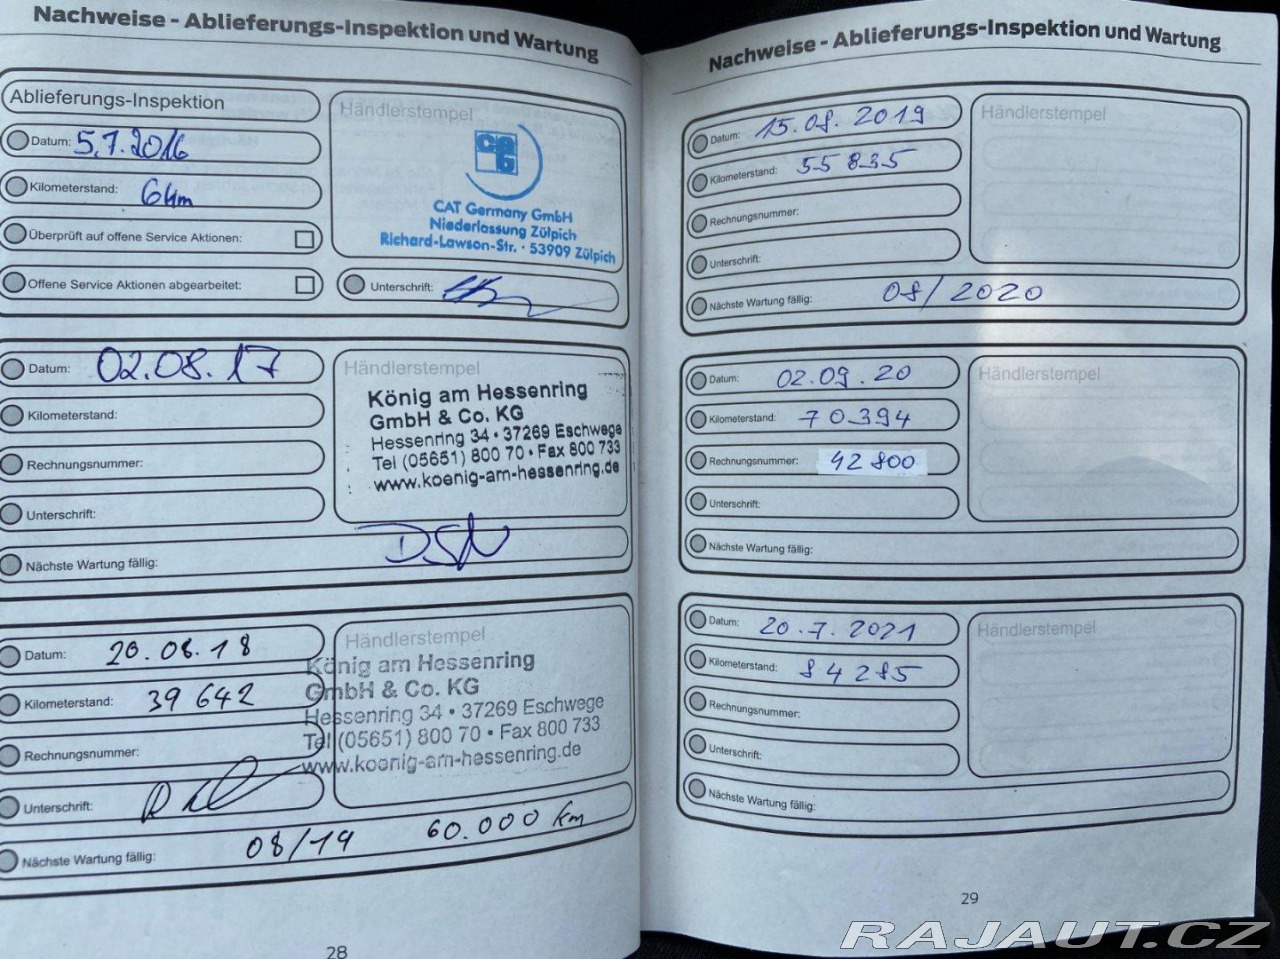 Nachweise - Ablieferungs-Inspektion und Wartung
Ablieferungs-Inspektion
Datum: 5.7.2016
Kilometerstand: 6 km
Überprüft auf offene Service Aktionen:
Offene Service Aktionen abgearbeitet:
Händlerstempel
CAT Germany GmbH
Niederlassung Zülpich
Richard-Lawson-Str. · 53909 Zülpich
Unterschrift:
Datum: 02.08.17
Kilometerstand:
Rechnungsnummer:
Unterschrift:
Nächste Wartung fällig:
Händlerstempel
König am Hessenring
GmbH & Co. KG
Hessenring 34 • 37269 Eschwege
Tel (05651) 800 70 • Fax 800 733
www.koenig-am-hessenring.de
Datum: 20.08.18
Kilometerstand: 39 642
Rechnungsnummer:
Unterschrift:
Nächste Wartung fällig: 08/19 60.000 km
Händlerstempel
König am Hessenring
GmbH & Co. KG
Hessenring 34 • 37269 Eschwege
Tel (05651) 800 70 • Fax 800 733
www.koenig-am-hessenring.de
28
Nachweise - Ablieferungs-Inspektion und Wartung
Datum: 15.08.2019
Kilometerstand: 55 835
Rechnungsnummer:
Unterschrift:
Nächste Wartung fällig: 08/2020
Händlerstempel
Datum: 02.09.20
Kilometerstand: 70394
Rechnungsnummer: 42800
Unterschrift:
Nächste Wartung fällig:
Händlerstempel
Datum: 20.7.2021
Kilometerstand: 84285
Rechnungsnummer:
Unterschrift:
Nächste Wartung fällig:
Händlerstempel
29
RAJAUT.CZ